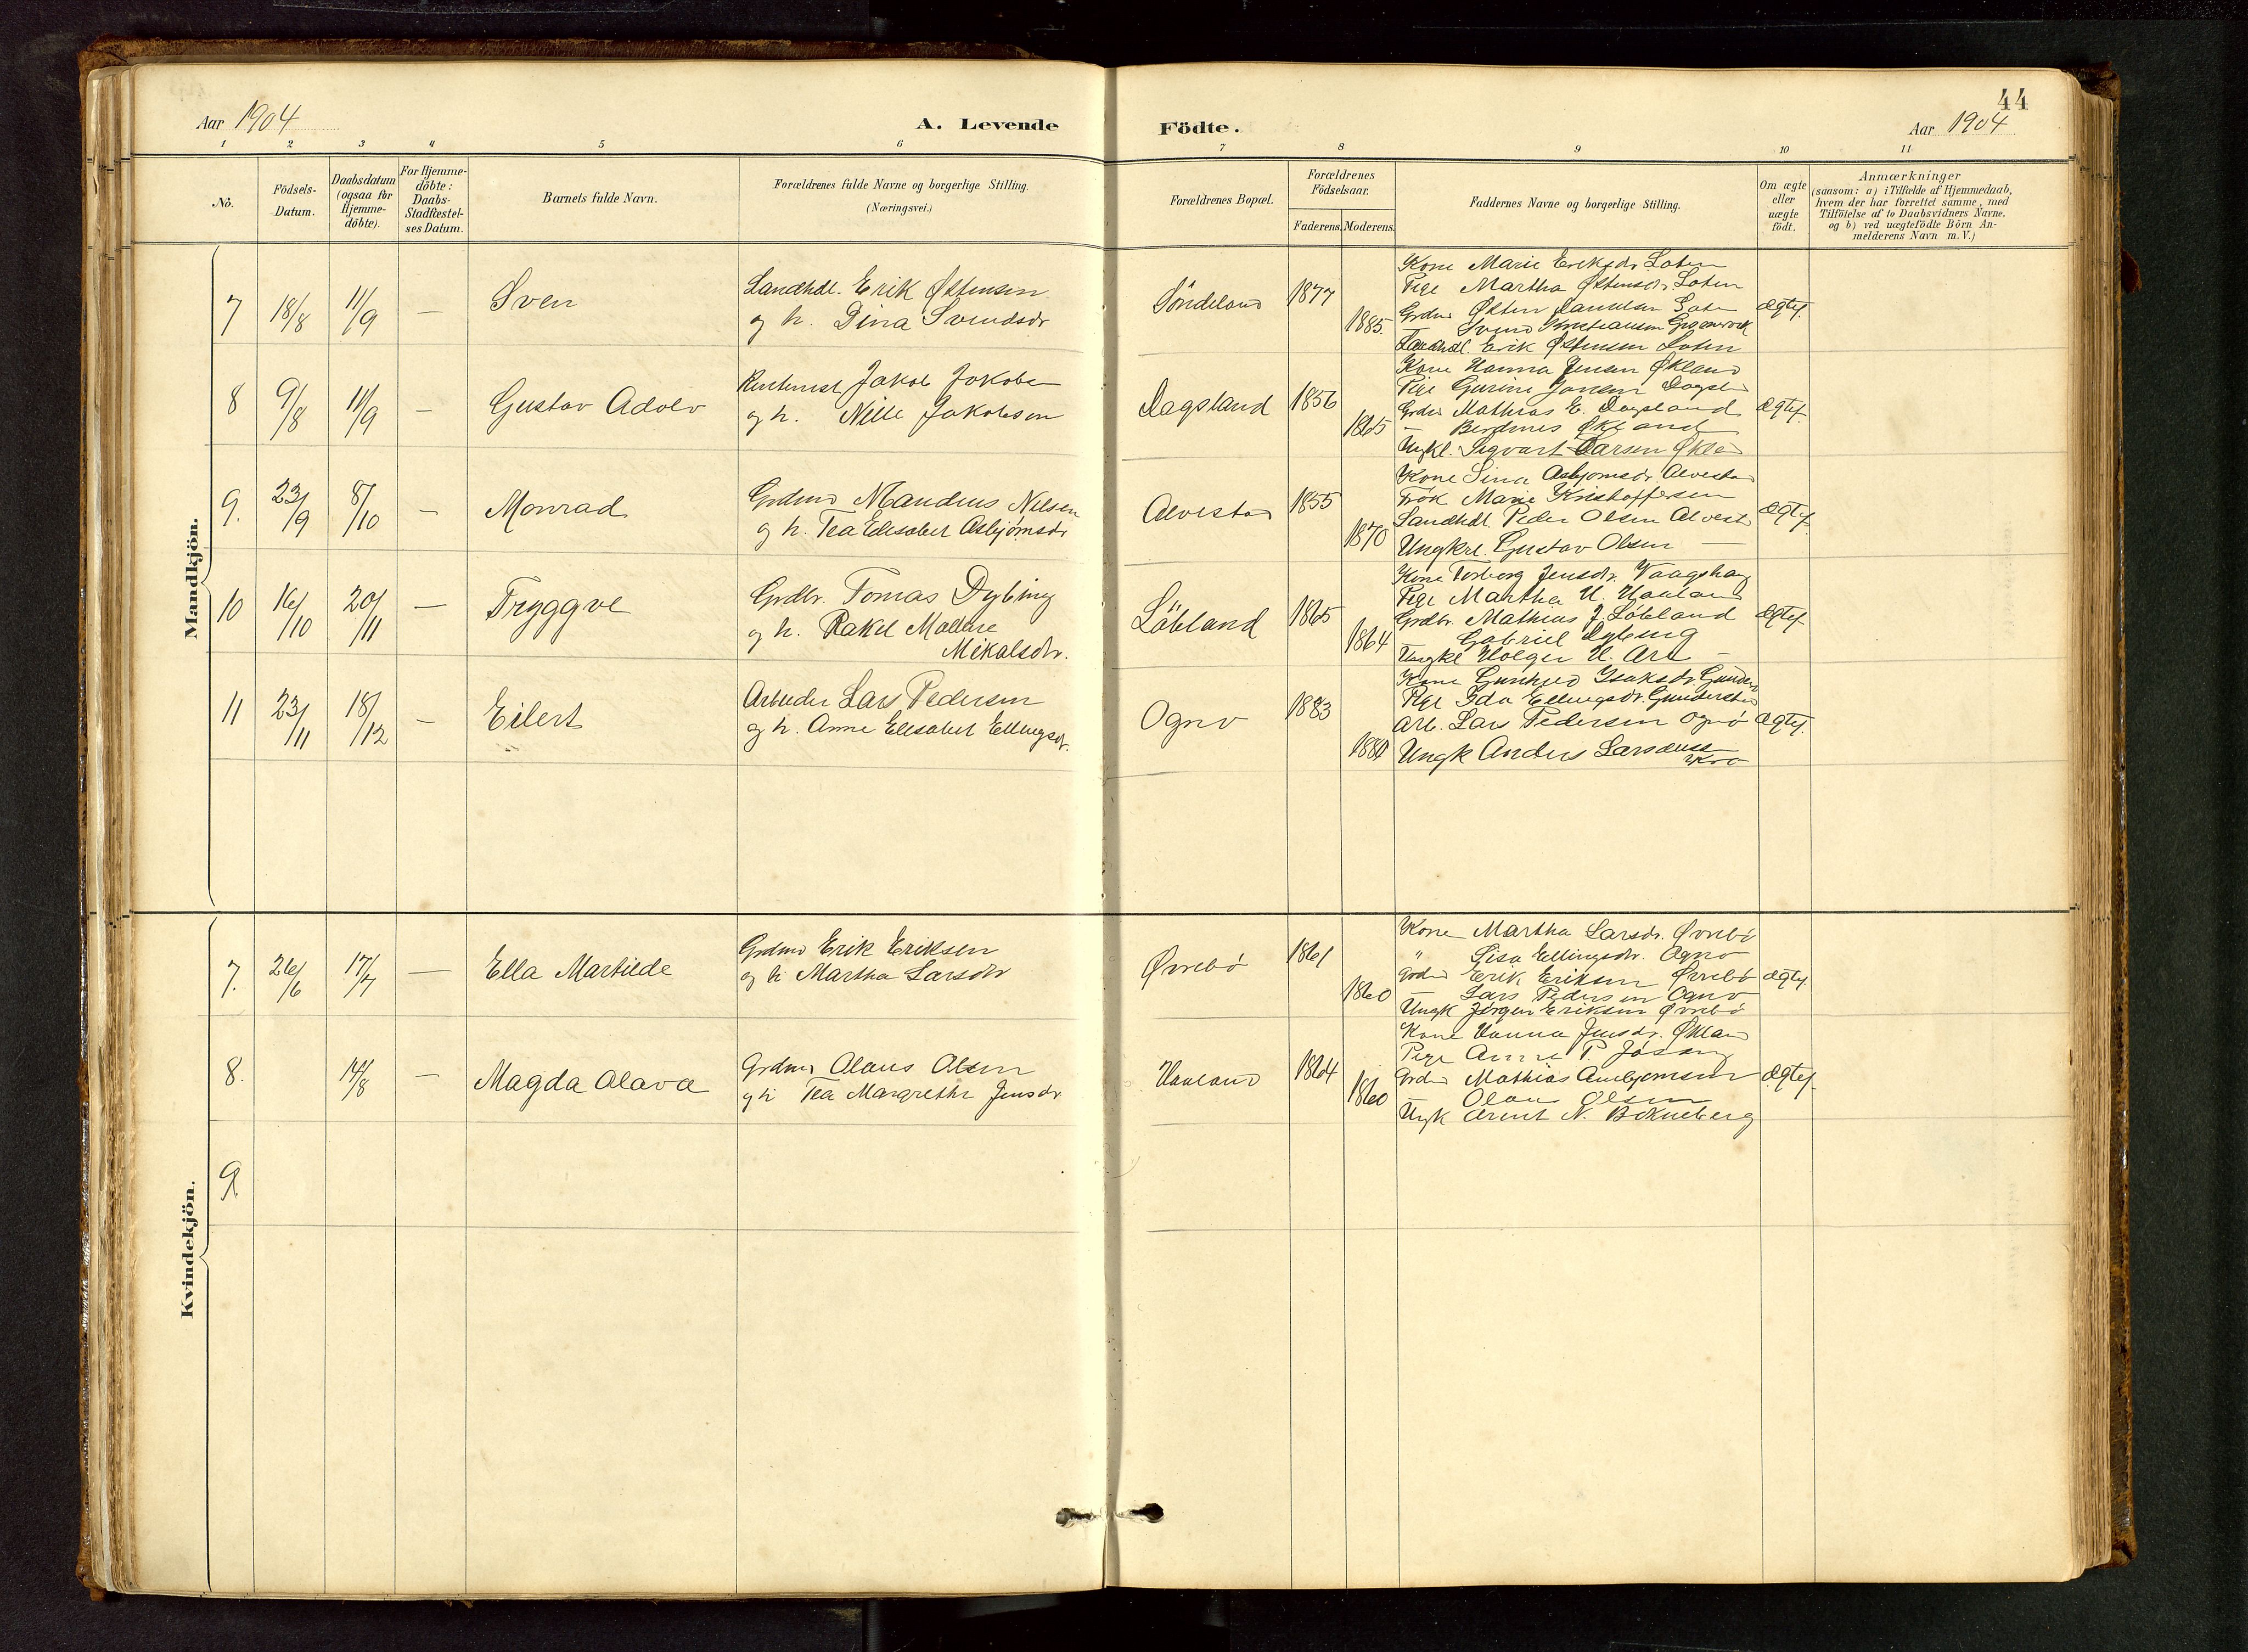 44
Aar 1904
A. Levende
Födte.
Aar 1904
1 2 3 4 5 6 7 8 9 10 11
No.
Födsels-
Datum.
Daabsdatum
(ogsaa för
Hjemme-
döbte).
For Hjemme-
döbte:
Daabs-
Stadfæstel-
ses Datum.
Barnets fulde Navn.
Forældrenes fulde Navne og borgerlige Stilling.
(Næringsvei.)
Forældrenes Bopæl.
Forældrenes
Födselsaar.
Faderens. Moderens.
Faddernes Navne og borgerlige Stilling.
Om ægte
eller
uægte
födt.
Anmærkninger
(saasom: a) i Tilfælde af Hjemmedaab,
hvem der har forrettet samme, med
Tilföielse af to Daabsvidners Navne,
og b) ved uægtefödte Börn An-
melderens Navn m. V.)
Mandkjön.
7 18/8 11/9 — Sven
Landhdl. Erik Østensen
og h. Dina Svendsdr
Söndeland 1877 1885
Kone Marie Eriksdr. Loten
Pige Martha Østensdr. Loten
Grdm Østen Danielsen
Svend
Landhdl. Erik Østensen Loten
Ægtef.
8 9/8 11/9 — Gustav Adolv
Jakob Jakobsen
og h. Nille Jakobsen
Dagsland 1856 1865
Kone Hanna Jensen Økland
Pige Gurine Jansen
Grdm Mathias E. Dagsland
— Berdines Økland
Ungkl. Sigvart Larsen
Ægtef.
9. 23/9 8/10 — Monrad
Grdmd Mandius Nilsen
og h. Tea Elisabet Asbjørnsdr
Alvestad 1855 1870
Kone Sina Asbjornsdr. Alvestad
Frøk Marie Kristoffersen
Landhdl. Peder Olsen Alvest
Ungkrl. Gustav Olsen —
Ægtef
10 16/10 20/11 — Tryggve
Grdbr. Tomas Dybing
og h. Rakel Malene
Mikalsdtr.
Løbland 1865 1864
Kone Torborg Jensdr. Vaagshag
Pige Martha H. Haaland
Grdbr. Mathias J. Løbland
Gabriel Dybing
Ungkl Holger H. —
Ægtef
11 23/11 18/12 — Eilert
Arbeider Lars Pedersen
og h. Anne Elisabet Ellingsdr.
Ognø 1883 1881
Kone Gunhild Isaksdr.
Pige Ida Ellingsdr.
Arb. Lars Pedersen Ognø
Ungk Anders Larsen
Ægtef.
Kvindekjön.
7. 26/6 17/7 — Ella Martilde
Grdmd Erik Eriksen
og h Martha Larsdr
Øvrebø 1861 1860
Kone Martha Larsdr. Øvrebø
" Lisa Ellingsdtr. Ognø
Grdmd Erik Eriksen Øvrebø
— Lars Pedersen Ognø
Ungk Jørgen Eriksen Øvrebø
Ægtef.
8. 14/8 — Magda Olava
Grdmd Olaus Olsen
og h Tea Margrethe Jensdr.
Haaland 1864 1860
Kone Hanna Jensdr. Økland
Pige Anne P. Jøsang
Grdmd Mathias
Olaus Olsen
Ungk Arent N. Bokneberg
Ægtef.
9